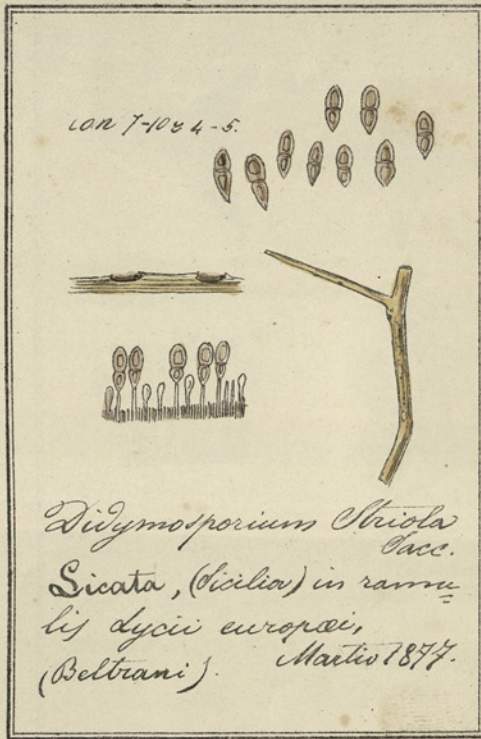 con 7-10 ≈ 4-5.
Didymosporium Striola
Sacc.
Licata, (Sicilia) in ramu=
lis Lycii europæi,
(Beltrani). Martio 1877.